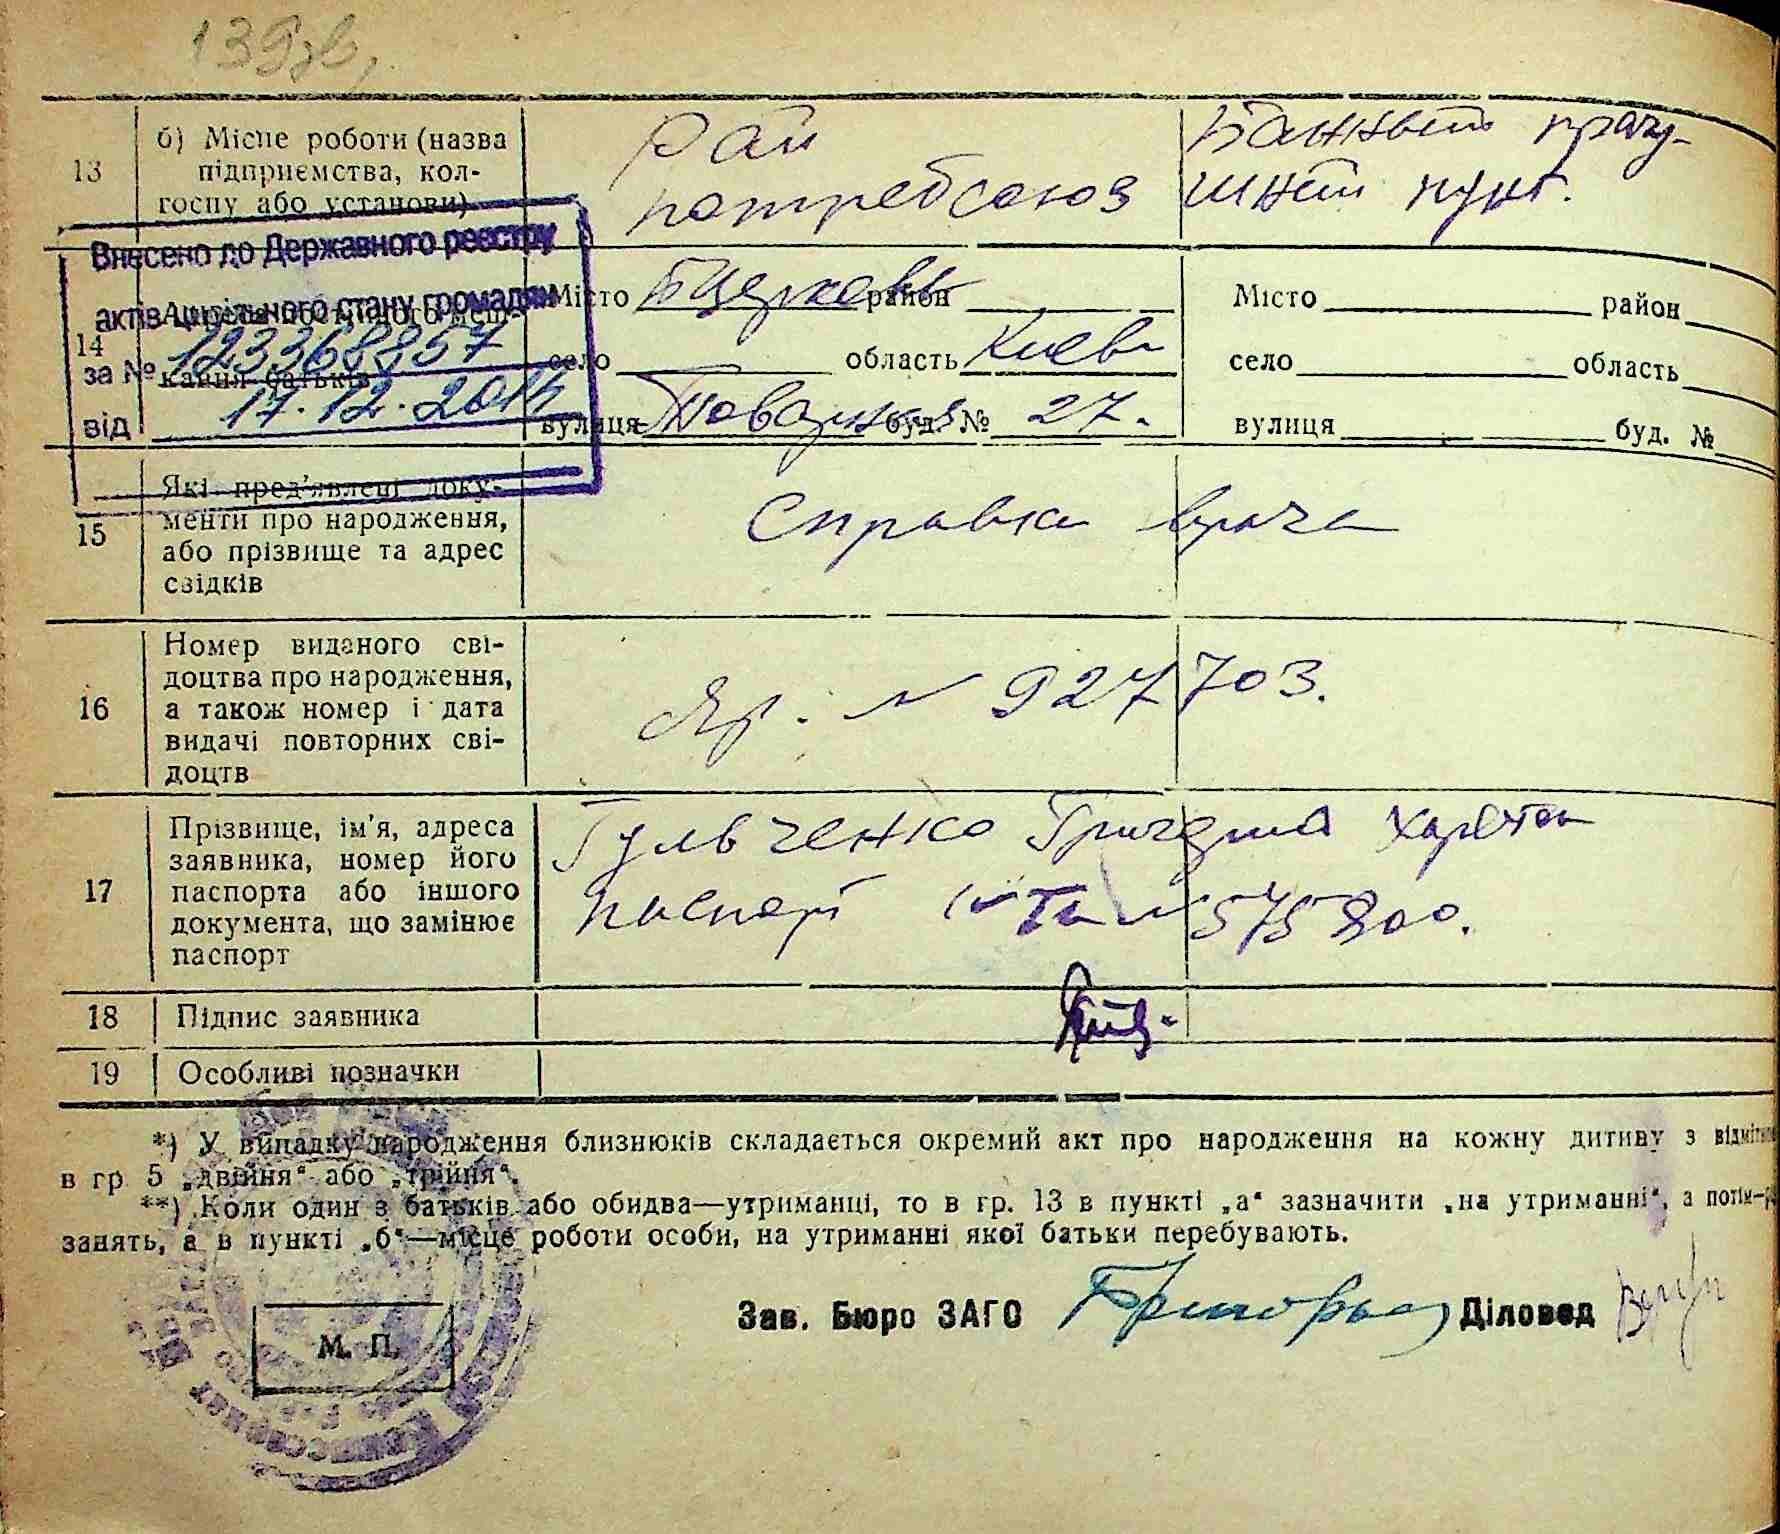 139зв,
13
б) Місце роботи (назва
підприємства, кол-
госпу або установи)
Рай
потребсоюз
Банный прачу-
шный пункт.
Внесено до Державного реєстру
актів цивільного стану громадян
за № 123368857
від 17.12.2014
14
кання батьків
Місто Б Церковь район
село область Киевс
вулиця буд. № 27.
Місто район
село область
вулиця буд. №
15
Які пред'явлені доку-
менти про народження,
або прізвище та адрес
свідків
Справка врача
16
Номер виданого сві-
доцтва про народження,
а також номер і дата
видачі повторних сві-
доцтв
N 927703.
17
Прізвище, ім'я, адреса
заявника, номер його
паспорта або іншого
документа, що замінює
паспорт
Гульченко
паспорт N 575800.
18 Підпис заявника
19 Особливі позначки
*) У випадку народження близнюків складається окремий акт про народження на кожну дитину з
в гр 5 „двійня“ або „трійня“.
**) Коли один з батьків або обидва—утриманці, то в гр. 13 в пункті „а“ зазначити „на утриманні“, а потім
занять, а в пункті „б“—місце роботи особи, на утриманні якої батьки перебувають.
М. П.
Зав. Бюро ЗАГС Діловод